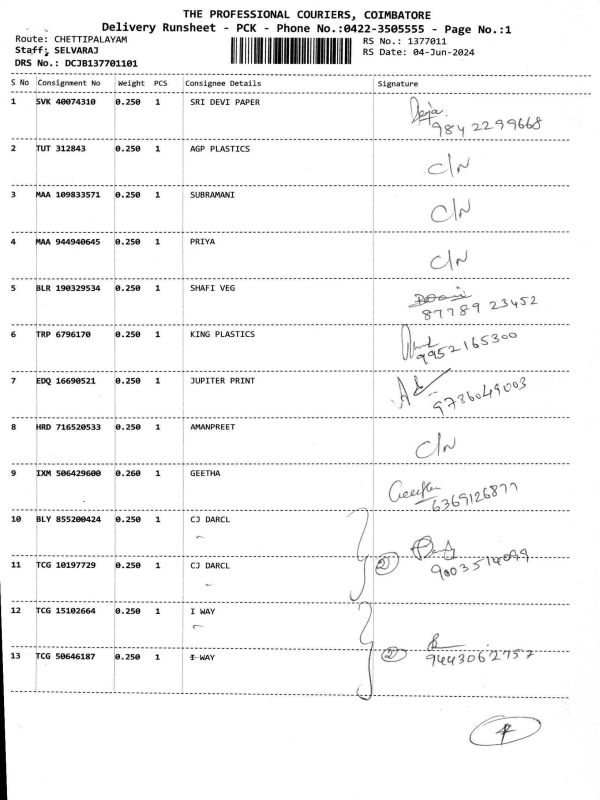 THE PROFESSIONAL COURIERS, COIMBATORE
Delivery Runsheet - PCK - Phone No.:0422-3505555 - Page No.:1
Route: CHETTIPALAYAM RS No.: 1377011
Staff: SELVARAJ RS Date: 04-Jun-2024
DRS No.: DCJB137701101
S No Consignment No Weight PCS Consignee Details Signature
1 SVK 40074310 0.250 1 SRI DEVI PAPER
9842299668
2 TUT 312843 0.250 1 AGP PLASTICS C/N
3 MAA 109833571 0.250 1 SUBRAMANI C/N
4 MAA 944940645 0.250 1 PRIYA C/N
5 BLR 190329534 0.250 1 SHAFI VEG
87789 23452
6 TRP 6796170 0.250 1 KING PLASTICS 9952165300
7 EDQ 16690521 0.250 1 JUPITER PRINT
9786049003
8 HRD 716520533 0.250 1 AMANPREET C/N
9 IXM 506429600 0.260 1 GEETHA Geetha
6369126877
10 BLY 855200424 0.250 1 CJ DARCL
11 TCG 10197729 0.250 1 CJ DARCL 2 9003514099
12 TCG 15102664 0.250 1 I WAY
13 TCG 50646187 0.250 1 I WAY 2 9443062757